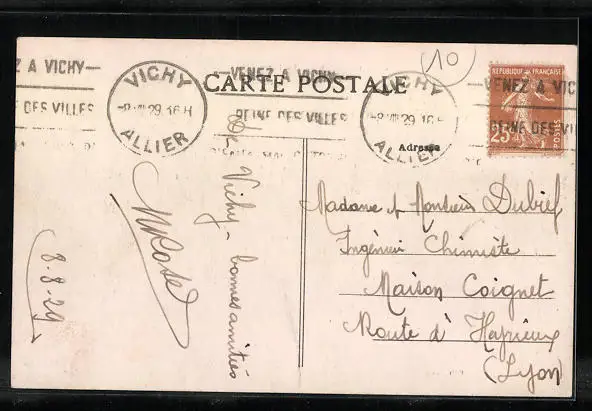 Z A VICHY—
DES VILLES
VICHY
-8 VIII 29. 16 H
ALLIER
—VENEZ A VICHY—
REINE DES VILLES
VICHY
-8 VIII 29. 16
ALLIER
—VENEZ A VIC
REINE DES VI
CARTE POSTALE
Adresse
10
REPUBLIQUE FRANÇAISE
25c
POSTES
De Vichy - bonnes amitiés
8.8.29
Madame et Monsieur Dubief
Ingénieur Chimiste
Maison Coignet
Route d'Heyrieux
(Lyon)